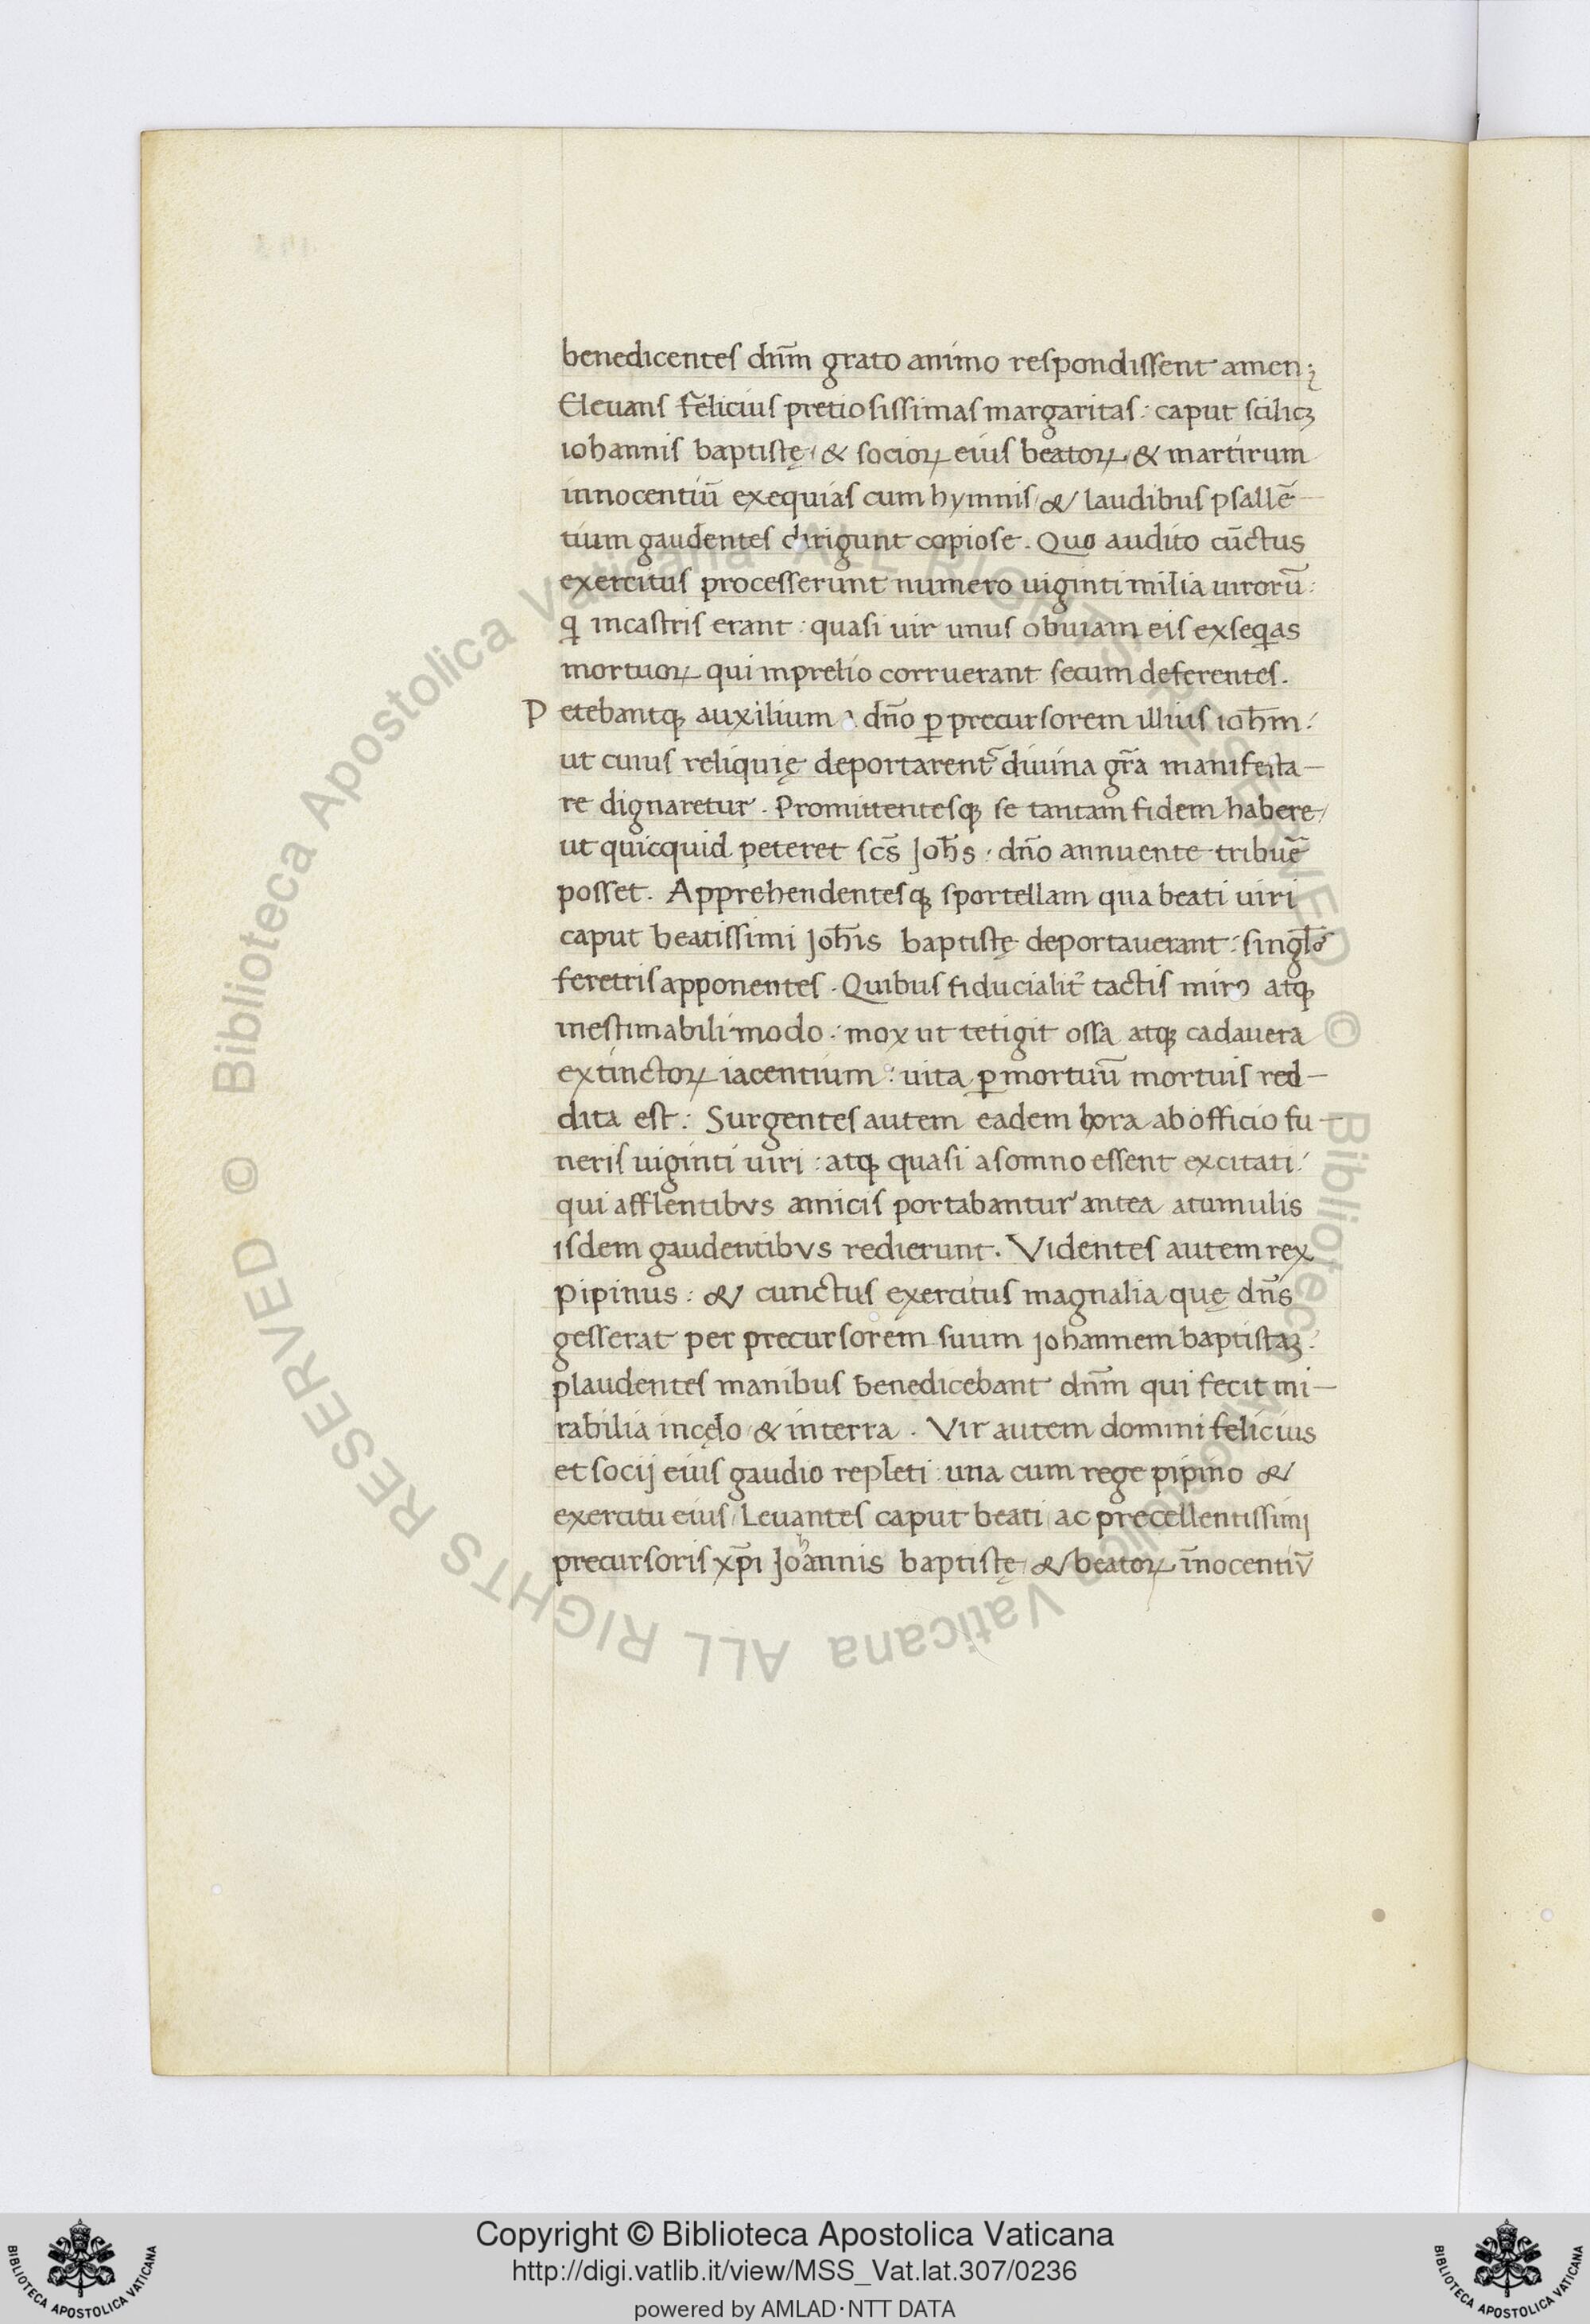 benedicentes dn̄m grato animo respondissent amen;
Elevans felicius pretiosissimas margaritas: caput scilicꝫ
iohannis baptistę / & socioꝝ eius beatoꝝ & martirum
innocentiū exequias cum hymnis / & laudibus psallē
tium gaudentes dirigunt copiose. Quo audito cūctus
exercitus processerunt numero uiginti milia uirorū:
qi incastris erant: quasi uir unus obuiam eis exseqias
mortuoꝝ qui inprelio corruerant secum deferentes.
Petebantqꝫ auxilium a dn̄o ꝑ precursorem illius ioh̄m:
ut cuius reliquię deportarent᷑ diuina gr̄a manifesta-
re dignaretur. Promittentesqꝫ se tantam fidem habere /
ut quicquid peteret scs̄ Joh̄s: dn̄o annuente tribuē
posset. Apprehendentesqꝫ sportellam qua beati uiri
caput beatissimi Joh̄is baptistę deportauerant: singl̄o
feretris apponentes. Quibus fiducialit᷑ tactis miro atqꝫ
inestimabili modo: mox ut tetigit ossa atqꝫ cadauera
extinctoꝝ iacentium: uita ꝑ mortuū mortuis red-
dita est: Surgentes autem eadem hora ab officio fu-
neris uiginti uiri: atqꝫ quasi asomno essent excitati:
qui afflentibus amicis portabantur antea atumulis
isdem gaudentibus redierunt. Videntes autem rex
pipinus: & cunctus exercitus magnalia quę dn̄s
gesserat per precursorem suum johannem baptistaꝫ:
plaudentes manibus benedicebant dn̄m qui fecit mi-
rabilia incęlo & interra. Vir autem domini felicius
et socij eius gaudio repleti: una cum rege pipino &
exercitu eius / Leuantes caput beati ac precellentissimj
precursoris xp̄i Johannis baptistę / & beatoꝝ īnocentiv̄
Copyright © Biblioteca Apostolica Vaticana
http://digi.vatlib.it/view/MSS_Vat.lat.307/0236
powered by AMLAD·NTT DATA
BIBLIOTECA APOSTOLICA VATICANA
BIBLIOTECA APOSTOLICA VATICANA
© Biblioteca Apostolica Vaticana ALL RIGHTS RESERVED © Biblioteca Apostolica Vaticana ALL RIGHTS RESERVED